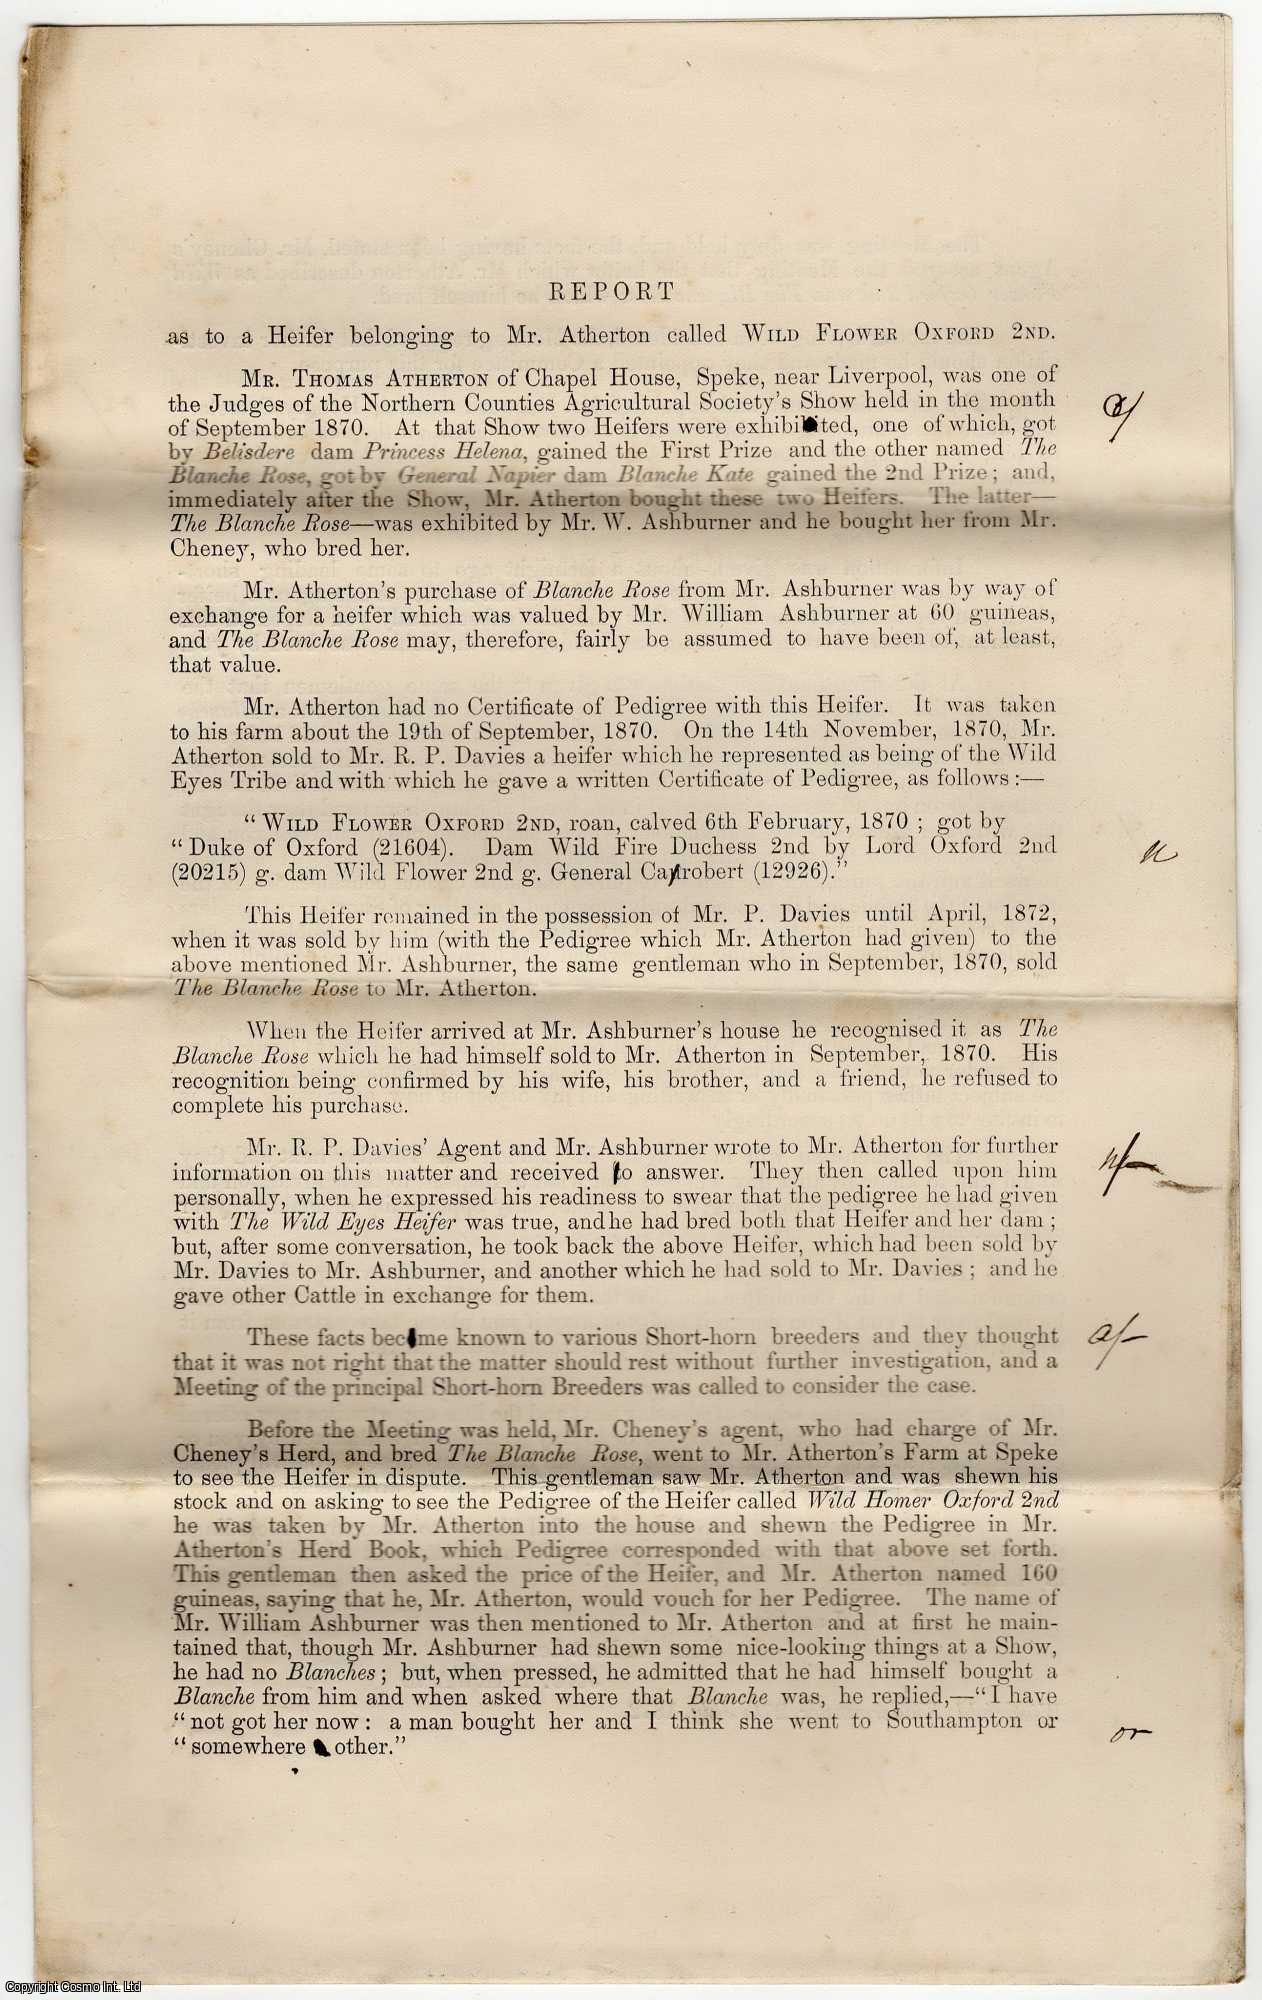 REPORT
as to a Heifer belonging to Mr. Atherton called WILD FLOWER OXFORD 2ND.
MR. THOMAS ATHERTON of Chapel House, Speke, near Liverpool, was one of
the Judges of the Northern Counties Agricultural Society's Show held in the month
of September 1870. At that Show two Heifers were exhibited, one of which, got
by Belisdere dam Princess Helena, gained the First Prize and the other named The
Blanche Rose, got by General Napier dam Blanche Kate gained the 2nd Prize; and,
immediately after the Show, Mr. Atherton bought these two Heifers. The latter—
The Blanche Rose—was exhibited by Mr. W. Ashburner and he bought her from Mr.
Cheney, who bred her.
Mr. Atherton's purchase of Blanche Rose from Mr. Ashburner was by way of
exchange for a heifer which was valued by Mr. William Ashburner at 60 guineas,
and The Blanche Rose may, therefore, fairly be assumed to have been of, at least,
that value.
Mr. Atherton had no Certificate of Pedigree with this Heifer. It was taken
to his farm about the 19th of September, 1870. On the 14th November, 1870, Mr.
Atherton sold to Mr. R. P. Davies a heifer which he represented as being of the Wild
Eyes Tribe and with which he gave a written Certificate of Pedigree, as follows:—
"WILD FLOWER OXFORD 2ND, roan, calved 6th February, 1870; got by
"Duke of Oxford (21604). Dam Wild Fire Duchess 2nd by Lord Oxford 2nd
(20215) g. dam Wild Flower 2nd g. General Carrobert (12926)."
n
This Heifer remained in the possession of Mr. P. Davies until April, 1872,
when it was sold by him (with the Pedigree which Mr. Atherton had given) to the
above mentioned Mr. Ashburner, the same gentleman who in September, 1870, sold
The Blanche Rose to Mr. Atherton.
When the Heifer arrived at Mr. Ashburner's house he recognised it as The
Blanche Rose which he had himself sold to Mr. Atherton in September, 1870. His
recognition being confirmed by his wife, his brother, and a friend, he refused to
complete his purchase.
Mr. R. P. Davies' Agent and Mr. Ashburner wrote to Mr. Atherton for further
information on this matter and received to answer. They then called upon him
n/
personally, when he expressed his readiness to swear that the pedigree he had given
with The Wild Eyes Heifer was true, and he had bred both that Heifer and her dam;
but, after some conversation, he took back the above Heifer, which had been sold by
Mr. Davies to Mr. Ashburner, and another which he had sold to Mr. Davies; and he
gave other Cattle in exchange for them.
These facts become known to various Short-horn breeders and they thought
a/
that it was not right that the matter should rest without further investigation, and a
Meeting of the principal Short-horn Breeders was called to consider the case.
Before the Meeting was held, Mr. Cheney's agent, who had charge of Mr.
Cheney's Herd, and bred The Blanche Rose, went to Mr. Atherton's Farm at Speke
to see the Heifer in dispute. This gentleman saw Mr. Atherton and was shewn his
stock and on asking to see the Pedigree of the Heifer called Wild Homer Oxford 2nd
he was taken by Mr. Atherton into the house and shewn the Pedigree in Mr.
Atherton's Herd Book, which Pedigree corresponded with that above set forth.
This gentleman then asked the price of the Heifer, and Mr. Atherton named 160
guineas, saying that he, Mr. Atherton, would vouch for her Pedigree. The name of
Mr. William Ashburner was then mentioned to Mr. Atherton and at first he main-
tained that, though Mr. Ashburner had shewn some nice-looking things at a Show,
he had no Blanches; but, when pressed, he admitted that he had himself bought a
Blanche from him and when asked where that Blanche was, he replied,—"I have
"not got her now: a man bought her and I think she went to Southampton or
"somewhere other."
or
Copyright Cosmo Int. Ltd